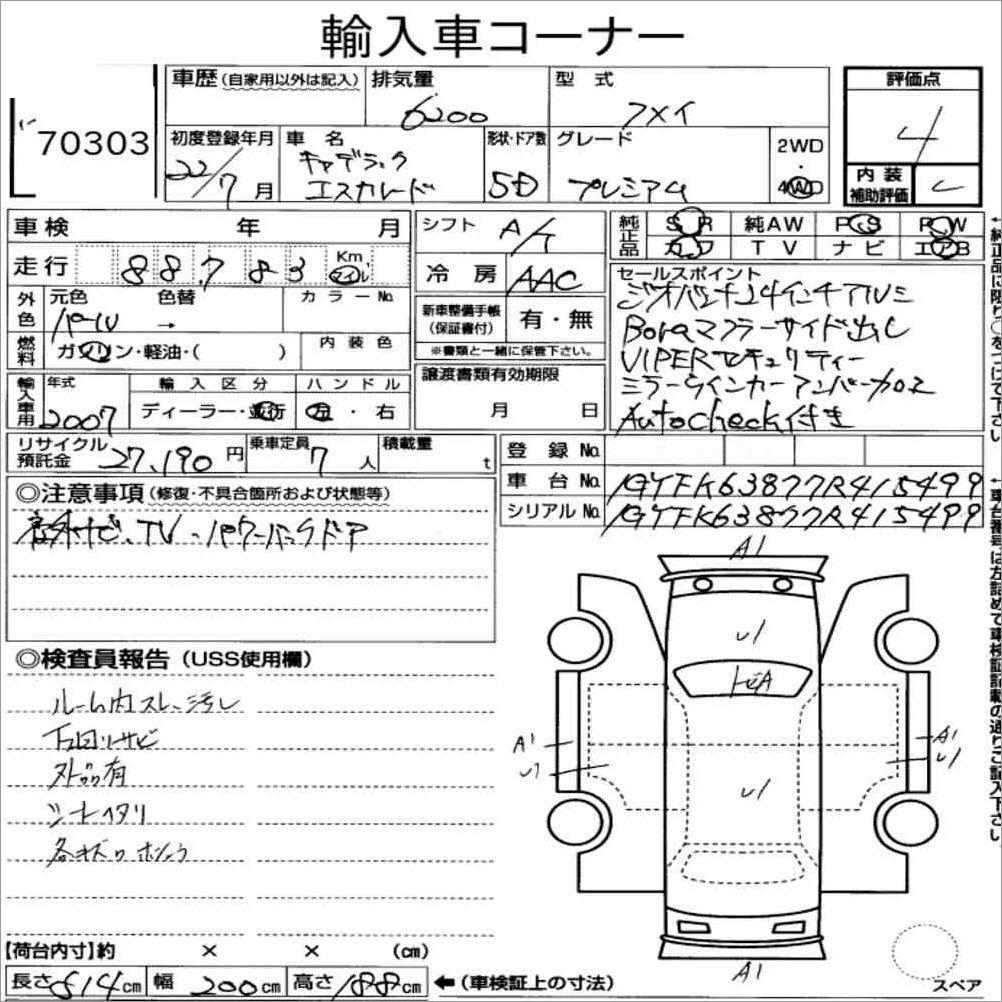 輸入車コーナー
70303
車歴(自家用以外は記入)
排気量 6200
型式 フメイ
評価点 4
初度登録年月 22/7月
車名 キャデラック
エスカレード
形状・ドア数 5D
グレード プレミアム
2WD
・
4WD
内装
補助評価 C
車検 年 月
シフト A/T
純正品 SR 純AW PS PW
カワ TV ナビ エアB
走行 88,783 Km, マイル
冷房 AAC
セールスポイント
ジオバンナ24インチアルミ
Boraマフラーサイド出し
VIPERセキュリティー
ミラーウインカーアンバークロス
Autocheck付き
外色 元色 パール → 色替 カラーNo.
新車整備手帳
(保証書付) 有・無
※書類と一緒に保管下さい。
燃料 ガソリン・軽油・( )
内装色
輸入車用 年式 2007
輸入区分 ディーラー・並行
ハンドル 左・右
譲渡書類有効期限
月 日
リサイクル
預託金 27,190円
乗車定員 7人
積載量 t
登録No.
車台No. 1GYFK63877R415499
シリアルNo. 1GYFK63877R415499
◎注意事項(修復・不具合箇所および状態等)
社外ナビ、TV、バックドア
◎検査員報告(USS使用欄)
ルーム内スレ、汚し
下回りサビ
外品有
シートヘタリ
各キズ
A1
U1
トビA
A1
U1
A1
U1
U1
A1
スペア
【荷台内寸】約 × × (cm)
長さ514cm 幅200cm 高さ188cm ←(車検証上の寸法)
↑純正品に限り○をつけて下さい
↑車台番号は左詰めで車検証記載の通りご記入下さい。